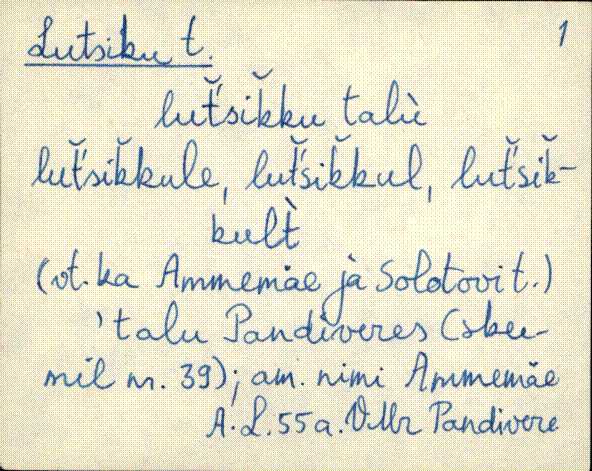 Lutsiku t. 1
lut̆'sik̆ku talù
lut̆'sik̆kule, lut̆'sik̆kul, lut̆'sik̆-
kult̀
(vt. ka Ammemäe jà Solotovi t.)
'talu Pandiveres (skee-
mil nr. 39); am. nimi Ammemäe
A. L. 55 a. VMr Pandivere